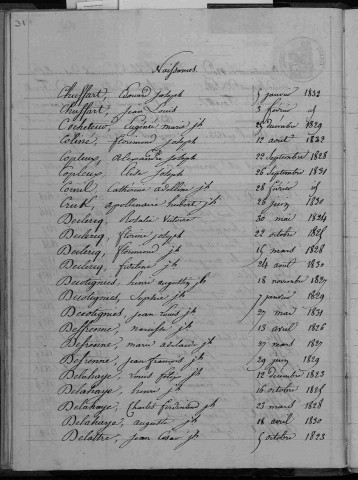 31
Naissances
Chuffart, Edouard joseph 5 janvier 1832
Chuffart, jean Louis 3 février id
Cocheteux, Eugénie marie jh 25 décembre 1829
Coline, florimond joseph 12 avril 1823
Copleux, Alexandre joseph 22 septembre 1828
Copleux, Elise joseph 26 septembre 1831
Cornil, Catherine adeline jh 28 février id
Crubt, apollinaire hubert jh 26 juin 1830
Declercq, Rosalie Victoire 30 mai 1824
Declercq, florine joseph 22 octobre 1825
Declercq, florimond jh 16 mars 1828
Declercq, fideline jh 24 août 1830
Decotignies, henri augustin jh 18 novembre 1827
Decotignies, Sophie jh 7 janvier 1829
Decotignies, jean Louis jh 27 mai 1831
Defrenne, jh 13 avril 1826
Defrenne, marie adelaide jh 27 mars 1827
Defrenne, jean françois jh 29 juin 1829
Delahaye, Louis joseph jh 12 décembre 1823
Delahaye, henri jh 16 octobre 1825
Delahaye, Charles ferdinand jh 23 mars 1828
Delahaye, augustin jh 18 avril 1830
Delattre, jean César jh 5 octobre 1823